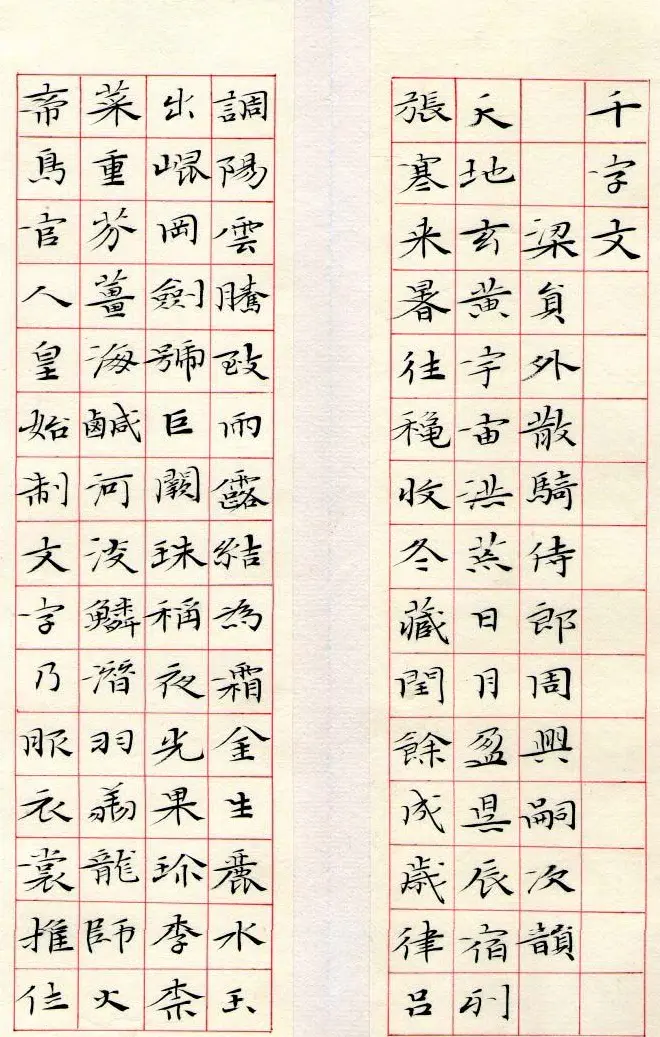 千字文
梁員外散騎侍郎周興嗣次韻
天地玄黃宇宙洪荒日月盈昃辰宿列
張寒来暑往穐收冬藏閏餘成歲律呂
調陽雲騰致雨露結為霜金生麗水玉
出崐岡劍號巨闕珠稱夜光果珍李柰
菜重芥薑海鹹河淡鱗潛羽翔龍師火
帝鳥官人皇始制文字乃服衣裳推位